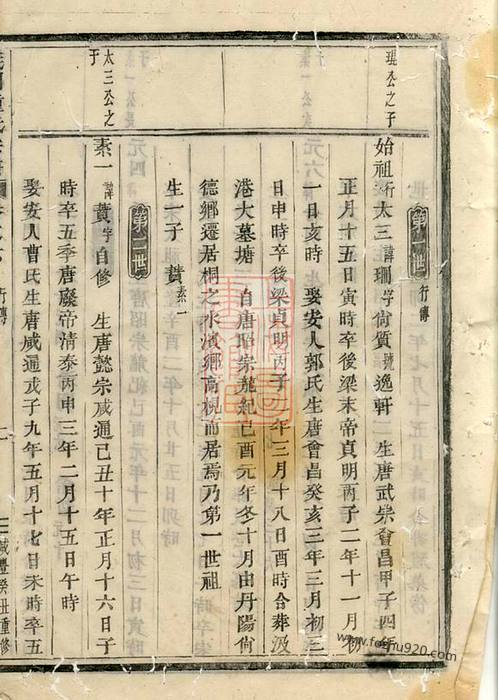 第一世 行傳
琨公之子
始祖行太三諱珊字尚質號逸軒 生唐武宗會昌甲子四年
正月十五日寅時卒後梁末帝貞明丙子二年十一月初
一日亥時 娶安人郭氏生唐會昌癸亥三年三月初三
日申時卒後梁貞明丙子 年三月十八日酉時合葬汲
港大墓塘 自唐昭宗龍紀己酉元年冬十月由丹陽尚
德鄉遷居桐之水濱鄉高梘而居焉乃第一世祖
生一子 蕡 素一
第二世
太三公之子
素一諱蕡字自修 生唐懿宗咸通己丑十年正月十六日子
時卒五季唐廢帝清泰丙申三年二月十五日午時
娶安人曹氏生唐咸通戊子九年五月十七日未時卒五
行傳
咸豐癸丑重修
www.foshu920.com